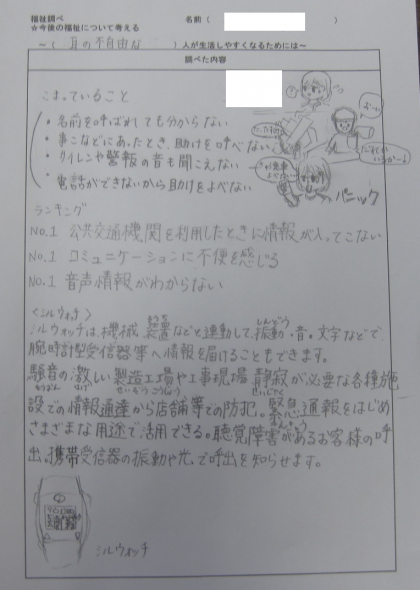 福祉調べ
☆今後の福祉について考える
名前（　　　）
〜（耳の不自由な　）人が生活しやすくなるためには〜
調べた内容
こまっていること
・名前を呼ばれても分からない
・事こなどにあったとき、助けを呼べない
・サイレンや警報の音も聞こえない
・電話ができないから助けをよべない
おーい
パニック
ランキング
No.1 公共交通機関を利用したときに情報が入ってこない
No.1 コミュニケーションに不便を感じる
No.1 音声情報がわからない
〈シルウォッチ〉
シルウォッチは、機械、装置などと連動して、振動・音。文字などで、
腕時計型受信器等へ情報を届けることもできます。
騒音の激しい製造工場や工事現場、静寂が必要な各種施
設での情報通達から店舗等での防犯。緊急通報をはじめ
さまざまな用途で活用できる。聴覚障害があるお客様の呼
出。携帯受信器の振動や光、で呼出を知らせます。
シルウォッチ